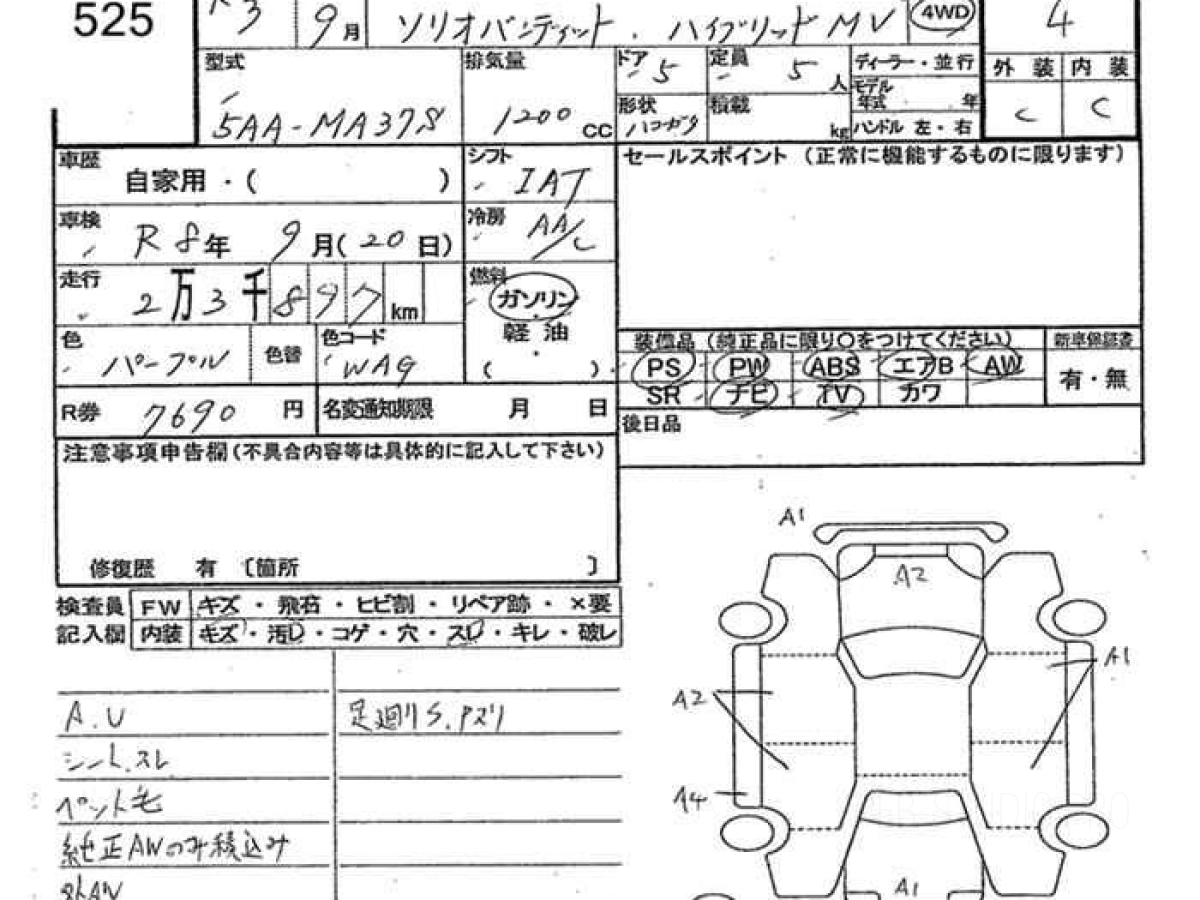 525
R3 9月 ソリオバンディット . ハイブリッド MV 4WD 4
型式 5AA-MA37S
排気量 1200 CC
ドア 5 定員 5 人
形状 ハコーガタ 積載 kg
ディーラー・並行
モデル年式 年
ハンドル 左・右
外 装 内 装
C C
車歴 自家用・( )
シフト IAT
車検 R8年 9月(20日)
冷房 AA/C
走行 2万3千897km
燃料 ガソリン
軽 油
( )
色 パープル 色替
色コード WAG
R券 7690 円
名変通知期限 月 日
セールスポイント (正常に機能するものに限ります)
装備品 (純正品に限り〇をつけてください) 新車保証書
PS PW ABS エアB AW
SR ナビ TV カワ
有・無
後日品
注意事項申告欄(不具合内容等は具体的に記入して下さい)
修復歴 有 〔箇所 〕
検査員 FW キズ・飛石・ヒビ割・リペア跡・×要
記入欄 内装 キズ・汚レ・コゲ・穴・スレ・キレ・破レ
A.U
シートスレ
ペット毛
純正AWのみ積込み
外AW
足廻りS.アズリ
A1
A2
A1
A2
A4
A1